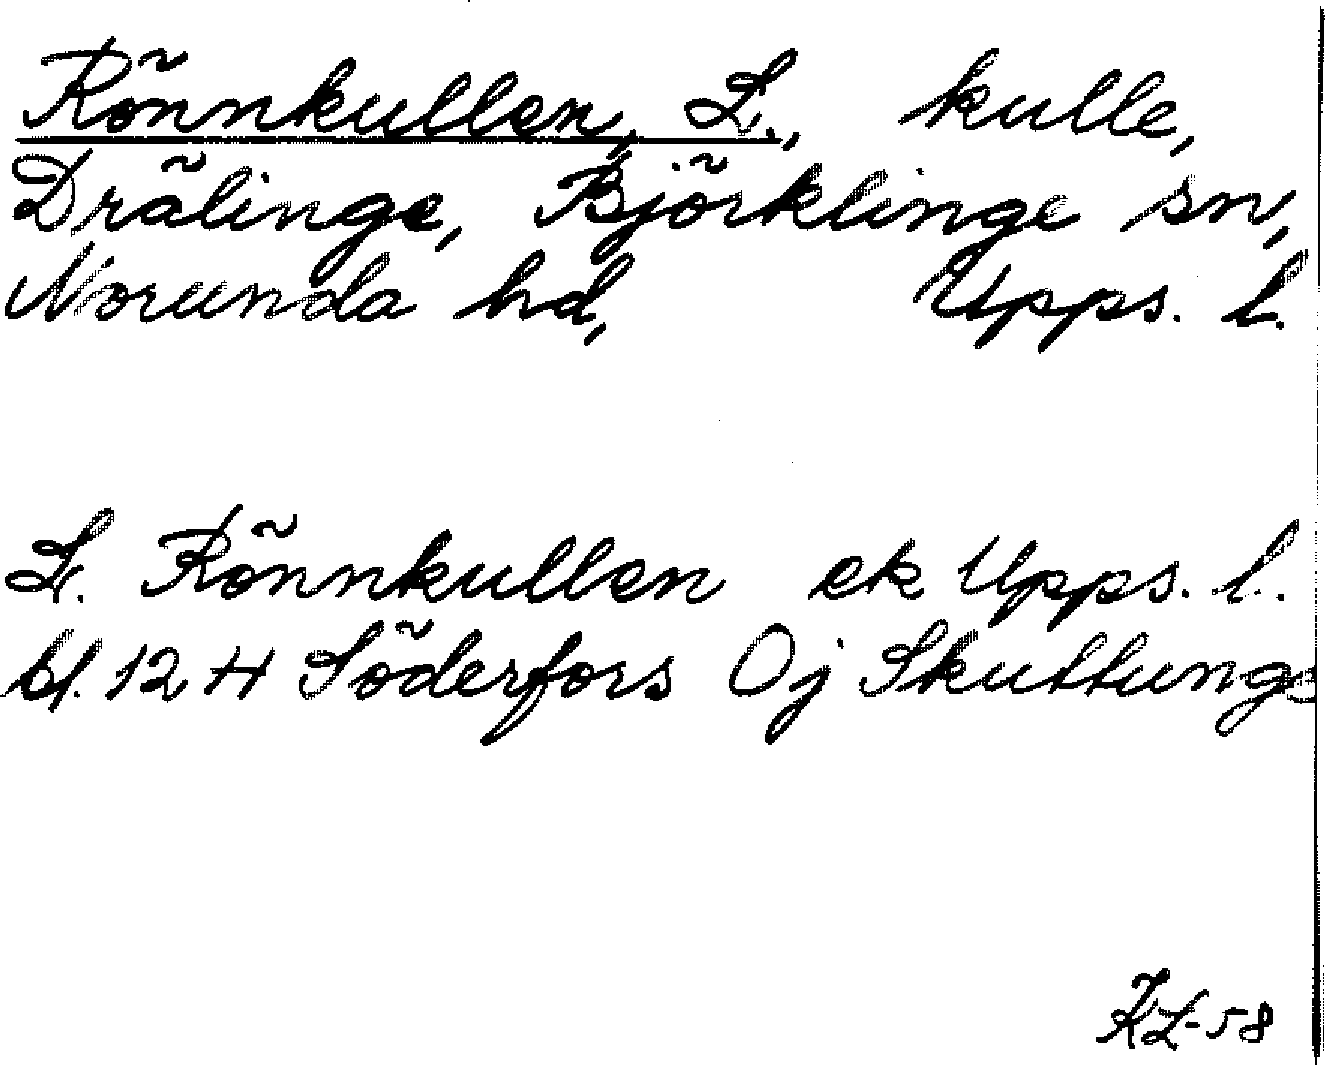 Rönnkullen, L., kulle,
Drälinge, Björklinge sn,
Norunda hd, Upps. l.
L. Rönnkullen ek Upps. l.
bl. 12 H Söderfors Oj Skuttunge
KL-58